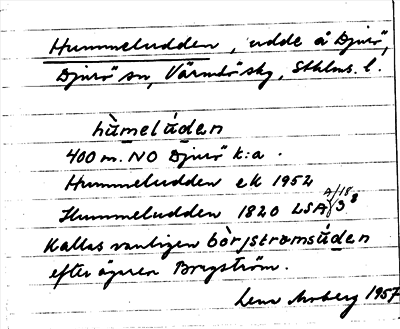 Hummeludden, udde å Djurö,
Djurö sn, Värmdö skg, Sthlms. l.
hùmelúden
400 m. NO Djurö k:a.
Hummeludden ek 1952
Hummeludden 1820 LSA A/18 3 8
Kallas vanligen bòrjstromsúden
efter ägaren Bergström.
Lena Moberg 1957